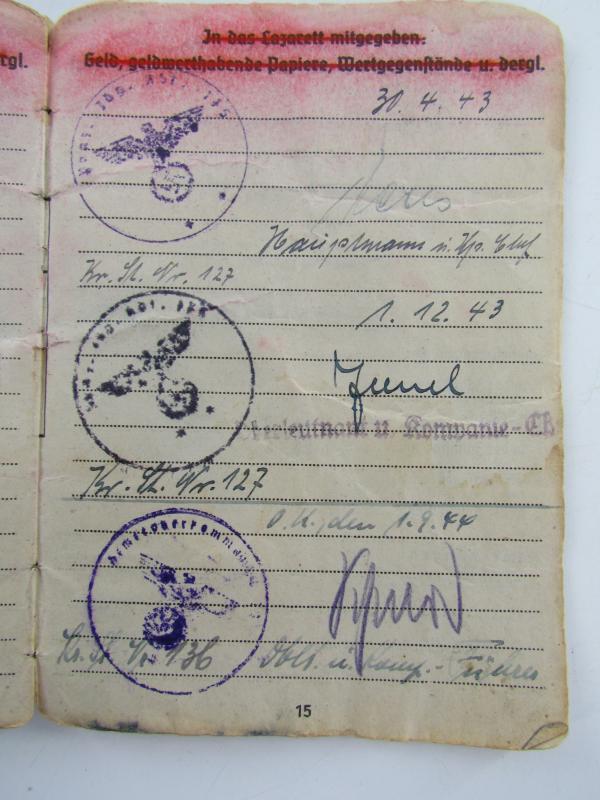 rgl.
In das Lazarett mitgegeben:
Geld, geldwerthabende Papiere, Wertgegenstände u. dergl.
30.4.43
Hauptmann u. Kp. Chef
Kr. St. Nr. 127
1.12.43
Oberleutnant u. Kompanie-Ch
Kr. St. Nr. 127
O.K., den 1.9.44
Kr. St. Nr. 136 Oblt. u. Komp.-Führer
15